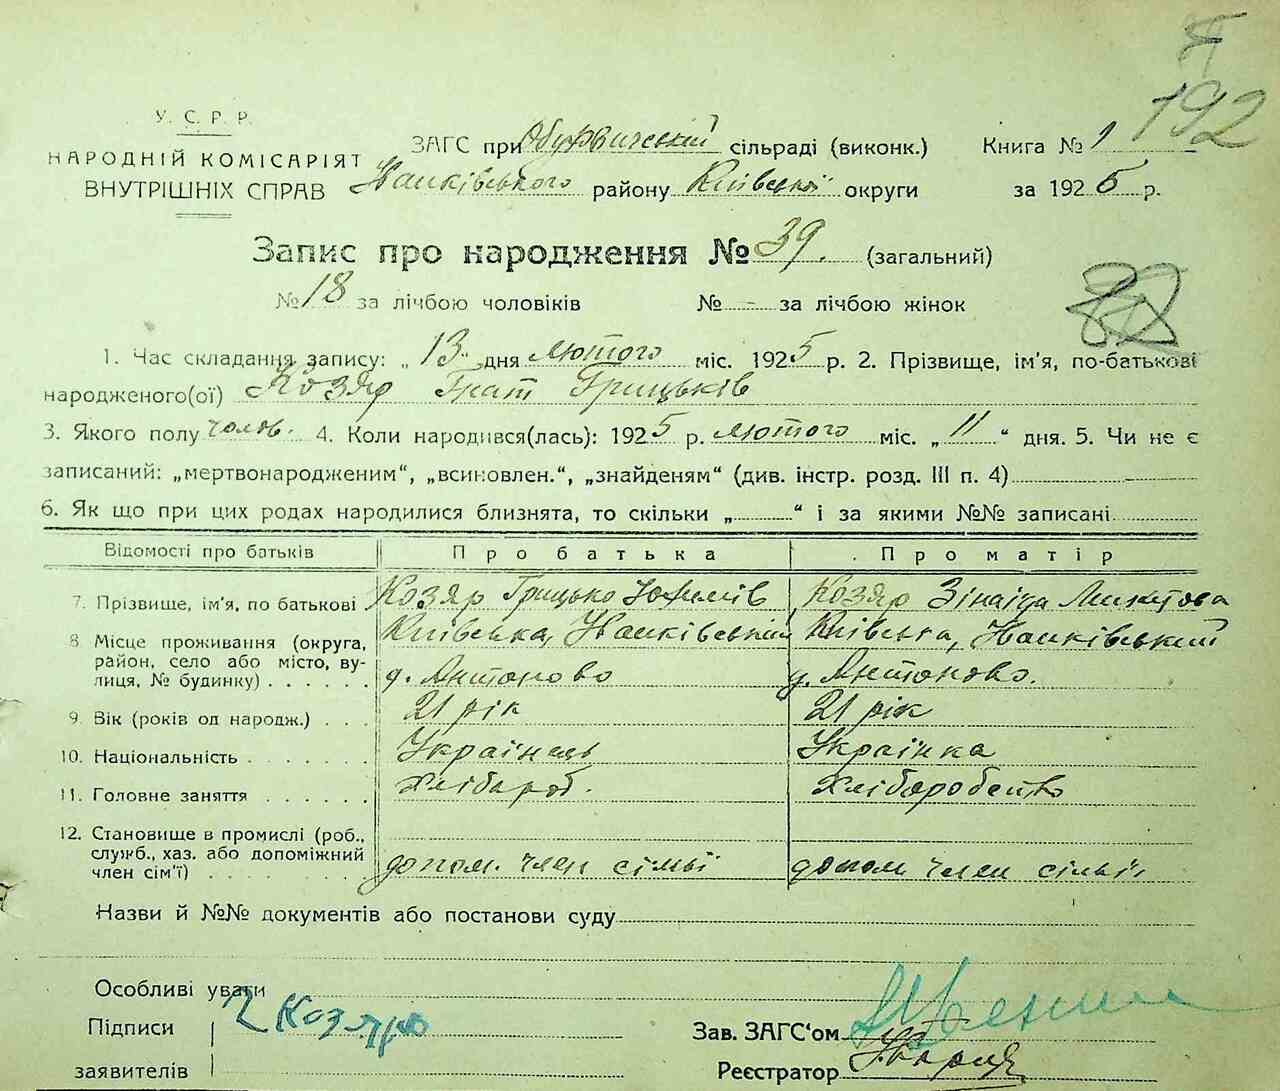 192
У. С. Р. Р.
НАРОДНІЙ КОМІСАРІЯТ
ВНУТРІШНІХ СПРАВ
ЗАГС при Обуховичській сільраді (виконк.) Книга № 1
району Київської округи за 1925 р.
Запис про народження № 39. (загальний)
№ 18 за лічбою чоловіків № - за лічбою жінок
1. Час складання запису: „ 13 " дня лютого міс. 1925 р. 2. Прізвище, ім'я, по-батькові
народженого(ої) Козяр Грицьків
3. Якого полу чолов. 4. Коли народився(лась): 1925 р. лютого міс. „ 11 “ дня. 5. Чи не є
записаний: „мертвонародженим“, „всиновлен.“, „знайденям“ (див. інстр. розд. III п. 4)
6. Як що при цих родах народилися близнята, то скільки „ “ і за якими №№ записані
Відомості про батьків Про батька Про матір
7. Прізвище, ім'я, по батькові Козяр Грицько Юхимів Козяр Зінаіда Микитова
8 Місце проживання (округа, Київська, Київська,
район, село або місто, ву-
лиця, № будинку) д. Антоново д. Антоново.
9. Вік (років од народж.) 21 рік 21 рік
10. Національність Українець Українка
11. Головне заняття хлібароб. Хлібаробство
12. Становище в промислі (роб.,
служб., хаз. або допоміжний
член сім'ї) допом. член сімьї допом член сімьї
Назви й №№ документів або постанови суду
Особливі уваги
Підписи Козяр
заявителів
Зав. ЗАГС'ом
Реєстратор